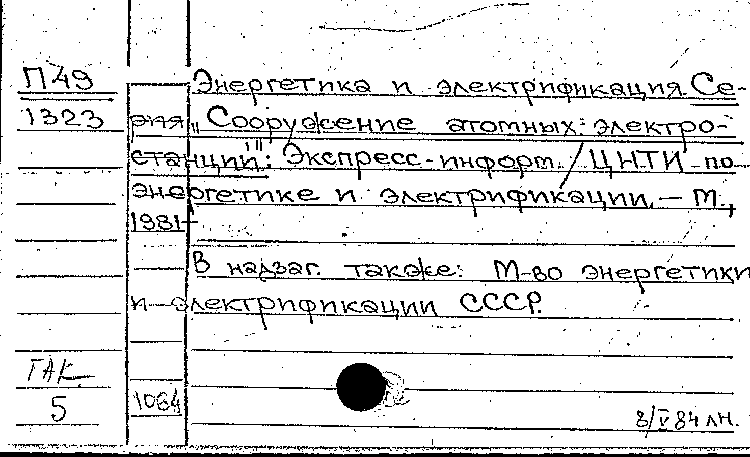 П49
1323
Энергетика и электрификация. Се-
рия „Сооружение атомных электро-
станций": Экспресс-информ. / ЦНТИ по
энергетике и электрификации. — М.,
1981-
В надзаг. также: М-во энергетики
и электрификации СССР.
ГАК
5
1064
8/V 84 лн.